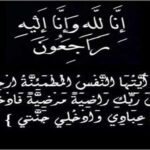 إنَّا لِلّهِ وَإِنَّـا إِلَيْهِ
رَاجِعُونَ
أَيَّتُهَا النَّفْسُ الْمُطْمَئِنَّةُ
رَبِّكِ رَاضِيَةً مَرْضِيَّةً
عِبَادِي وَادْخُلِي جَنَّتِي }